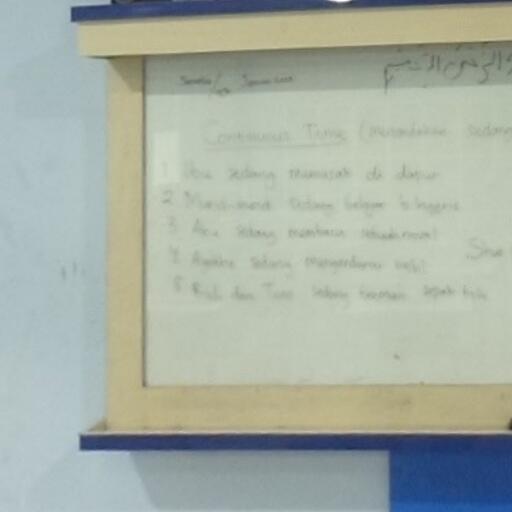 الرحمن الرحيم
Continuous Time (menandakan sedang
1 Ibu sedang memasak di dapur
2 Murid-murid sedang belajar b. Inggris
3 Aku sedang membaca sebuah novel
4 Ayahku sedang mengendarai mobil
5 Rudi dan Tono sedang bermain sepak bola
She